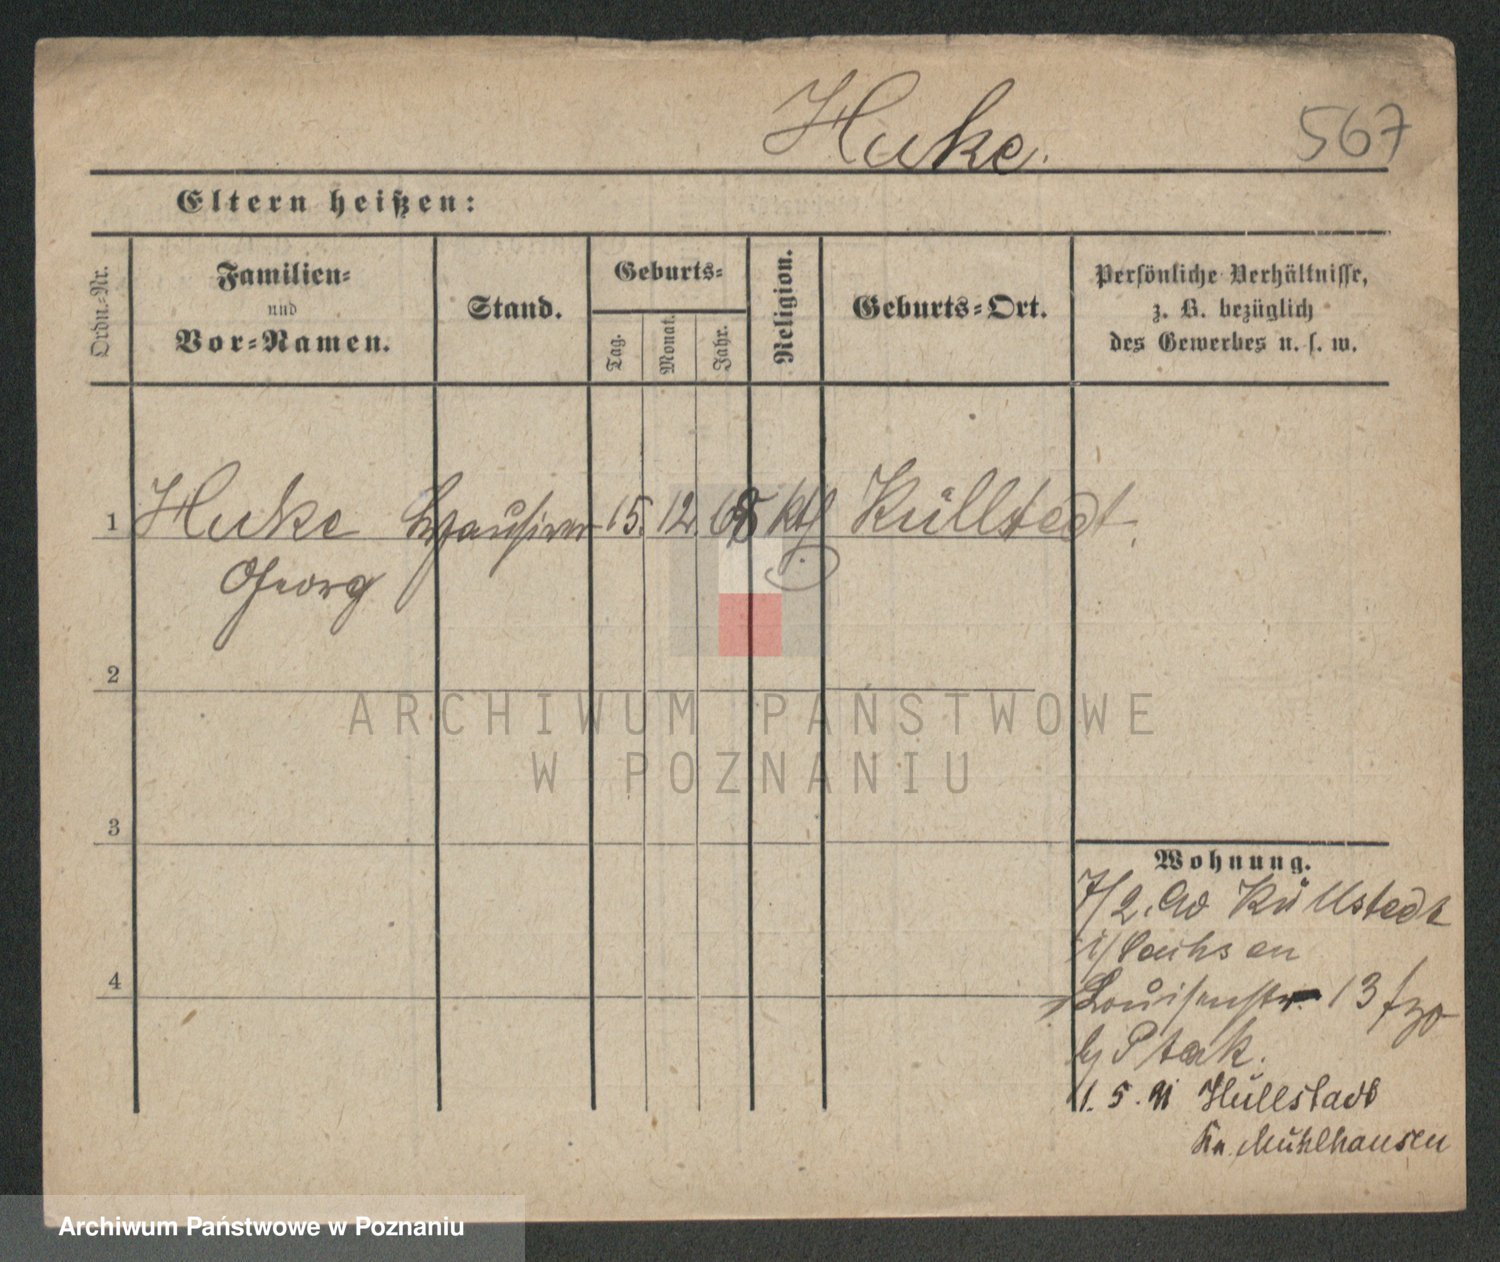 Huke. 567
Eltern heißen:
Ordn.-Nr.
Familien-
und
Vor-Namen.
Stand.
Geburts-
Tag.
Monat.
Jahr.
Religion.
Geburts-Ort.
Persönliche Verhältnisse,
z. B. bezüglich
des Gewerbes u. s. w.
1 Huke 15. 12. 68 ktl Küllstedt.
Georg
2
ARCHIWUM PAŃSTWOWE
W POZNANIU
3
Wohnung.
7/2. 90 Küllstedt
i/Sachsen
4
Louisenstr. 13
b/ Ptak.
1. 5. 91 Hüllstadt
Kr. Mühlhausen
Archiwum Państwowe w Poznaniu